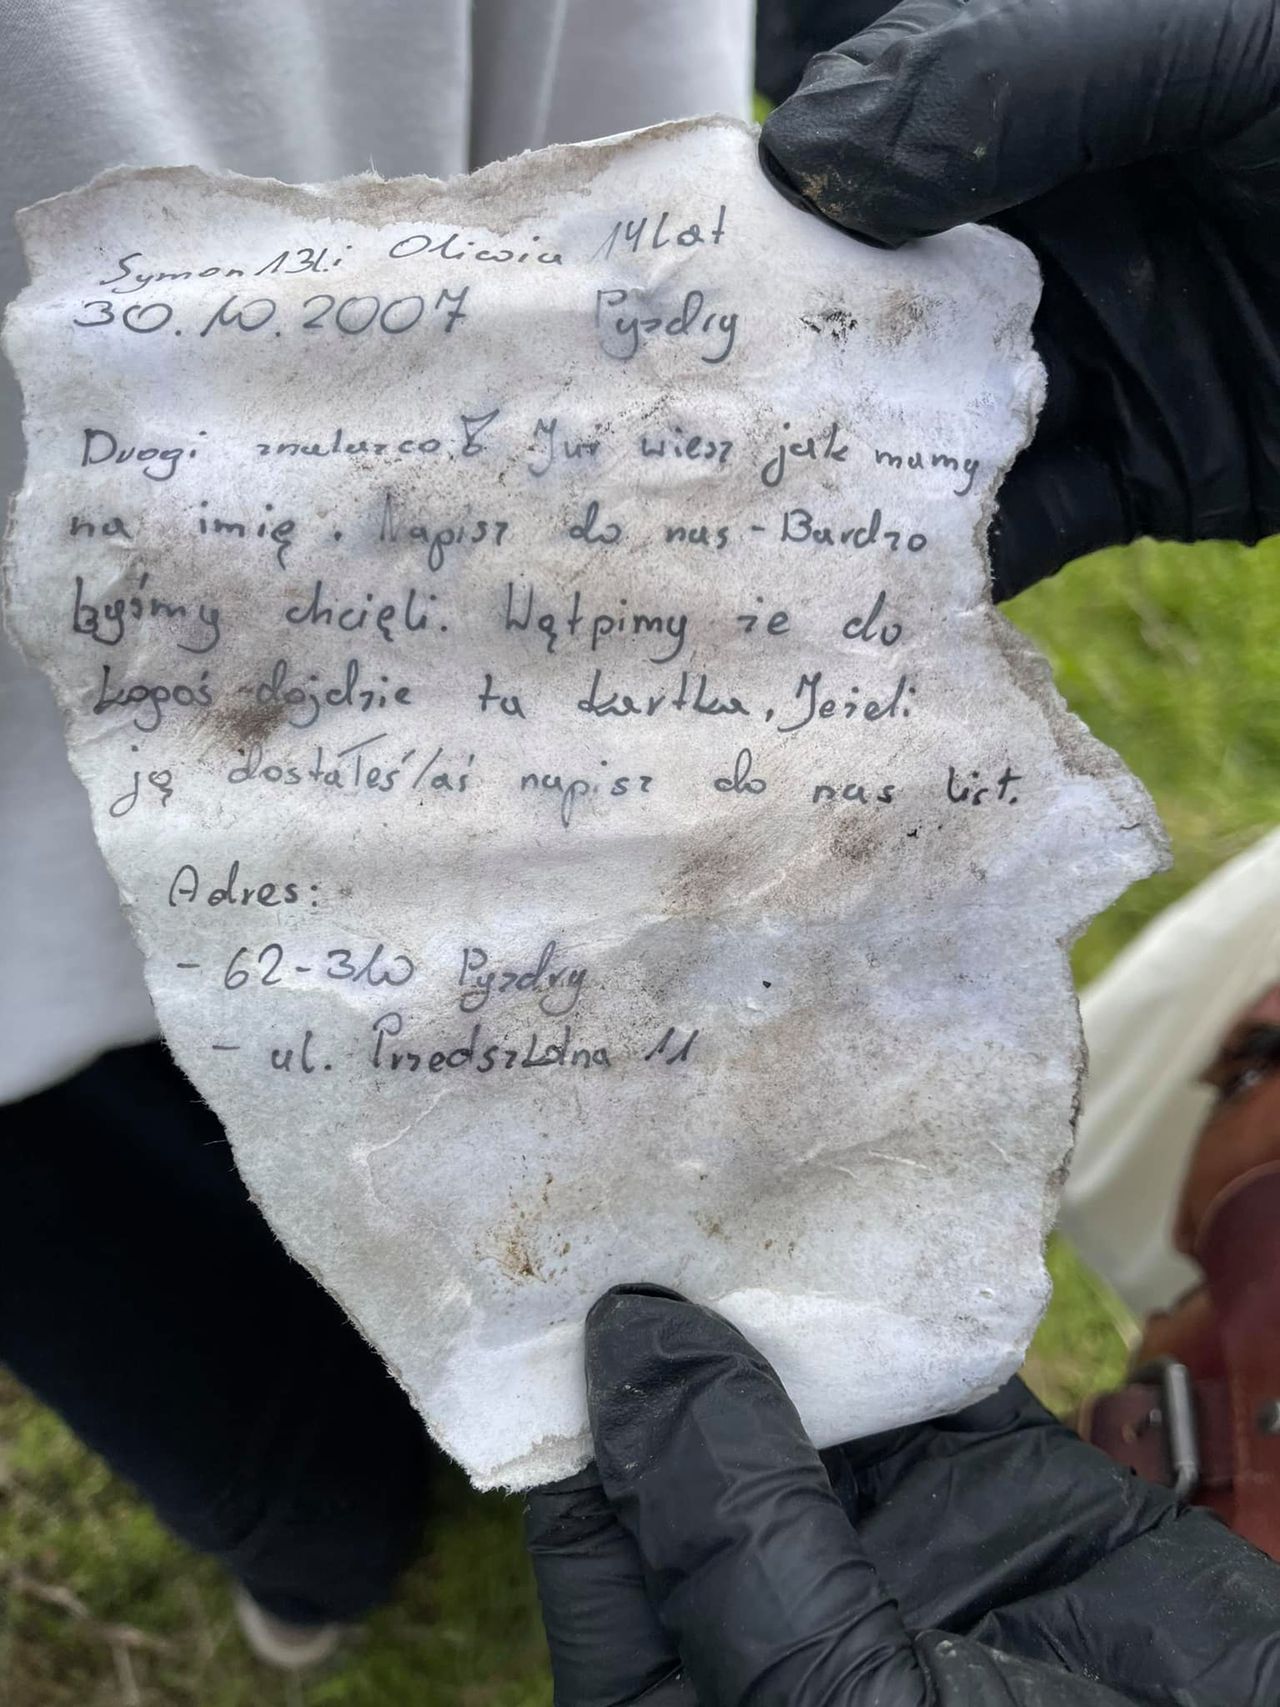 Symon 13l. i Oliwia 14 lat
30.10.2007 Pyzdry
Drogi znalazco! Już wiesz jak mamy
na imię. Napisz do nas - Bardzo
byśmy chcięli. Wątpimy że do
kogoś dojdzie ta kartka, Jeżeli
ją dostałeś/aś napisz do nas list.
Adres:
- 62-310 Pyzdry
- ul. Przedszkolna 11